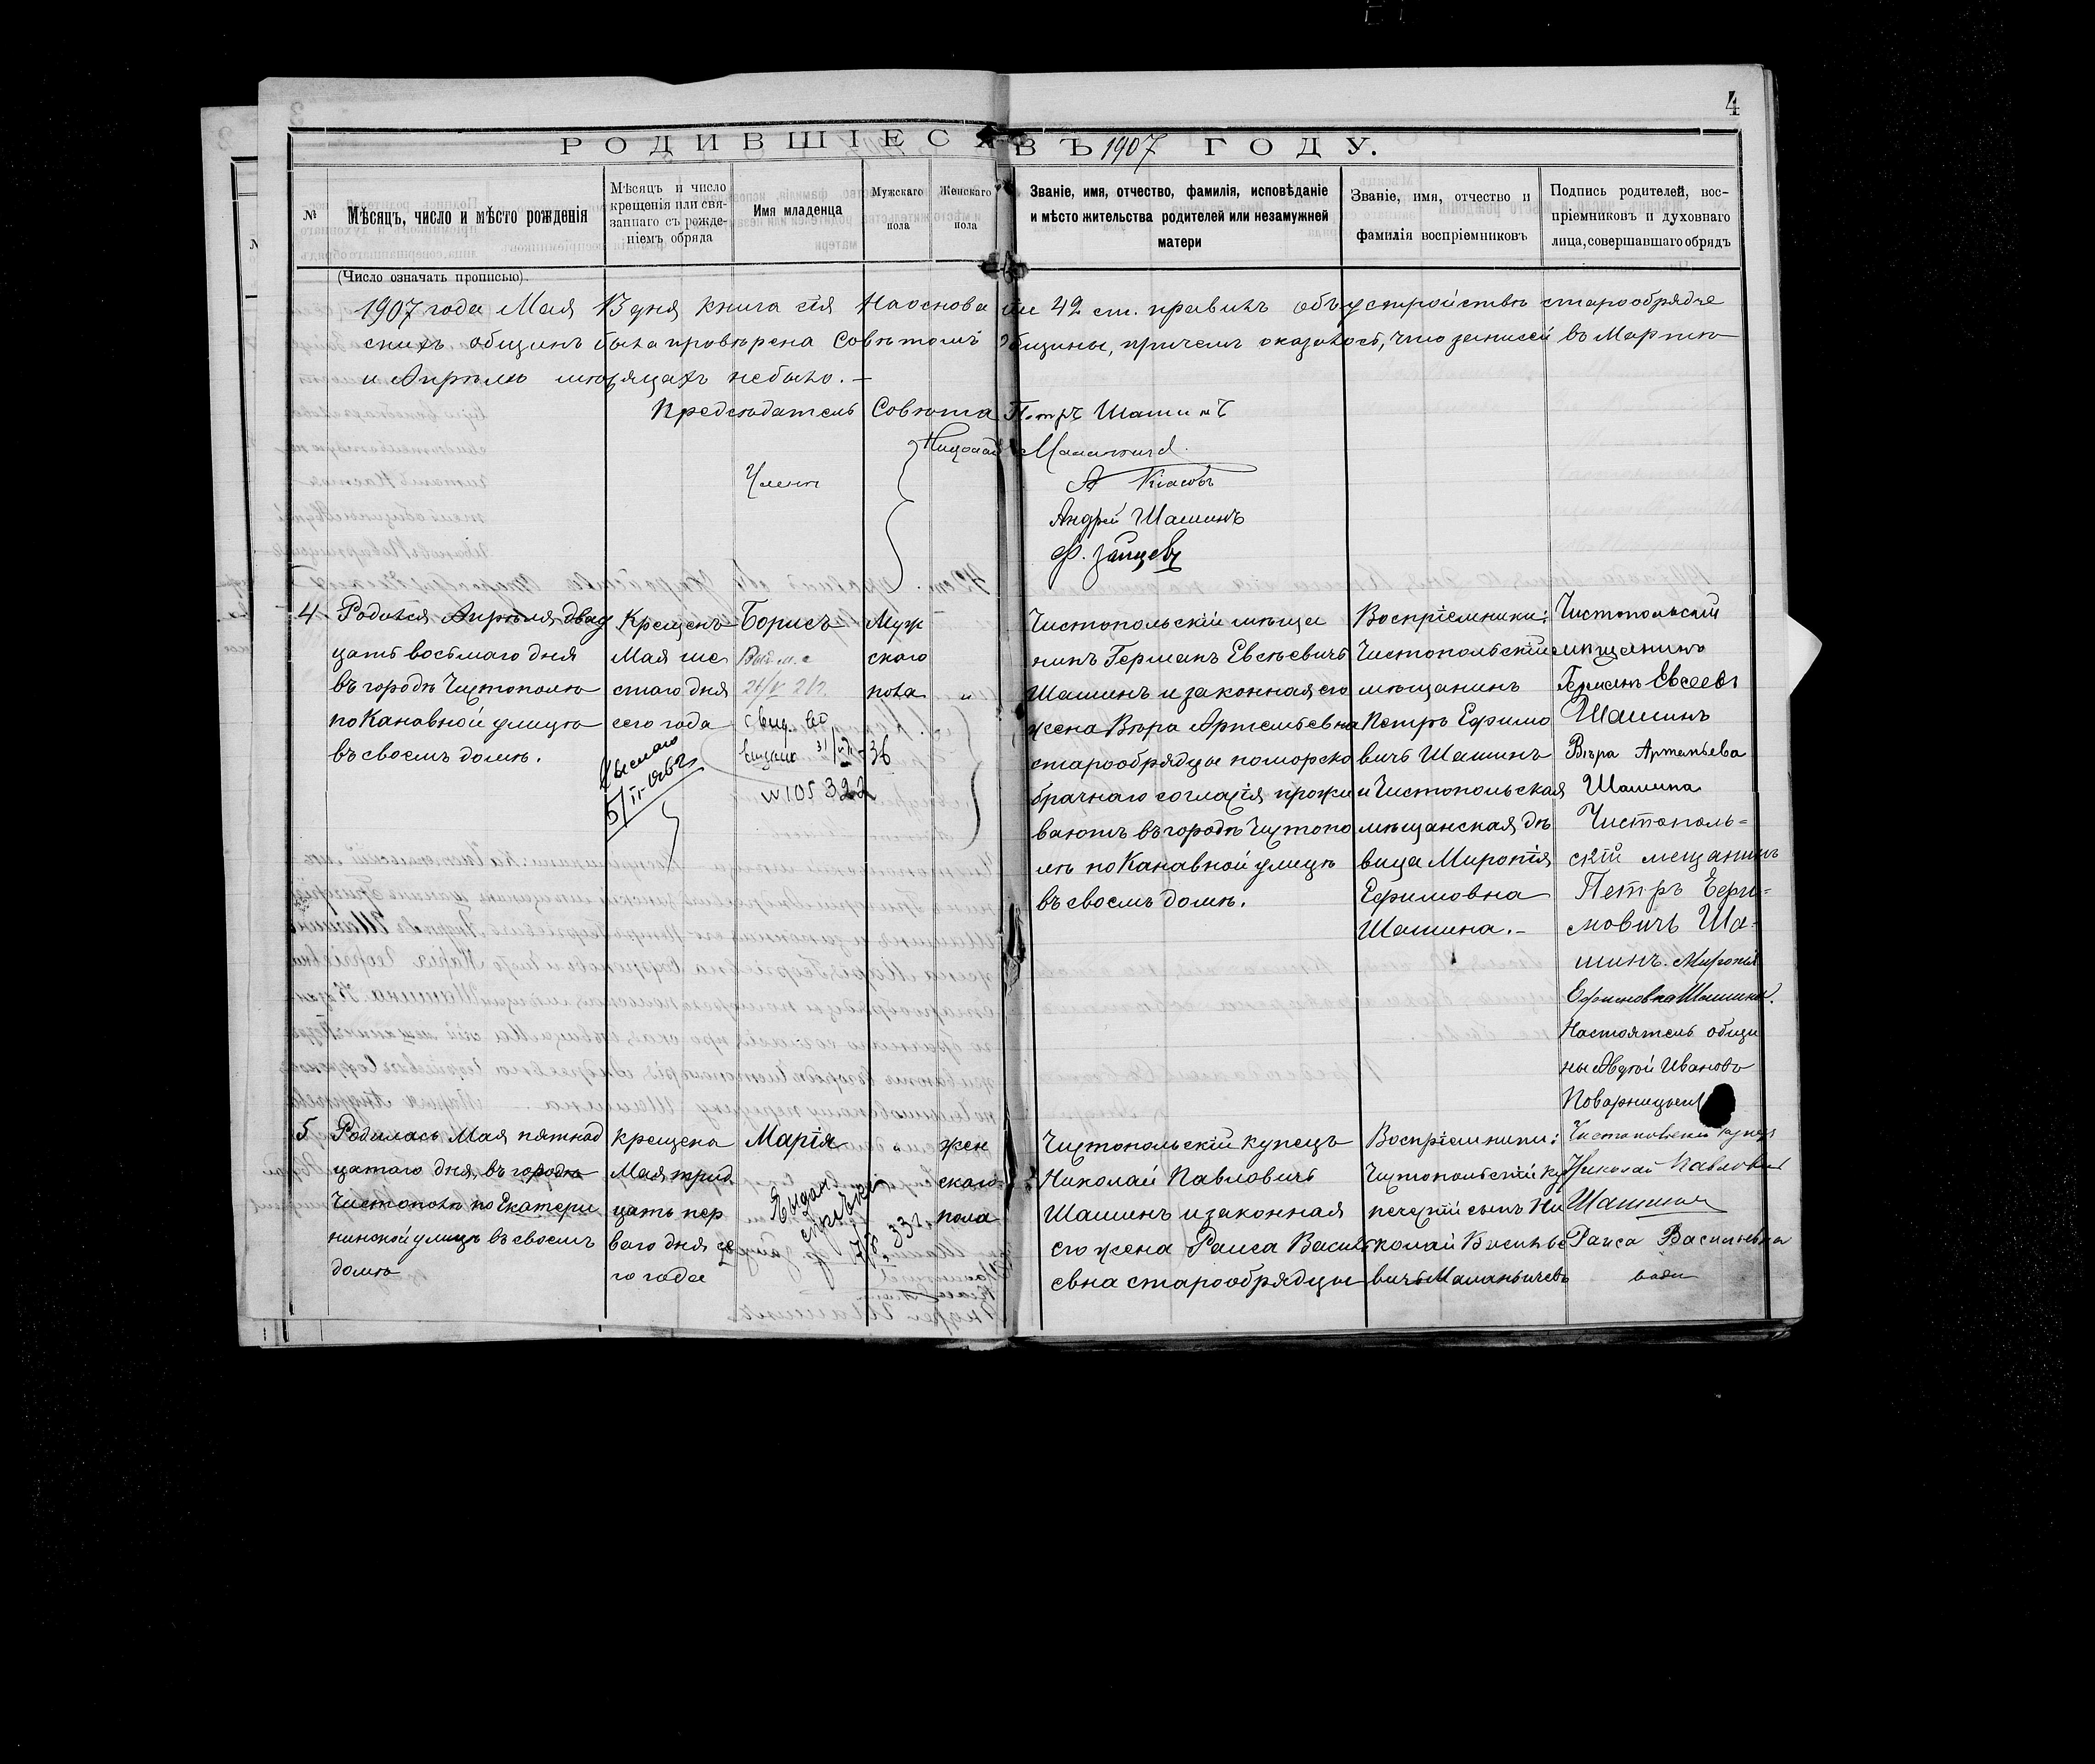 4
РОДИВШІЕСЯ ВЪ 1907 ГОДУ.
№
Мѣсяцъ, число и мѣсто рожденія
Мѣсяцъ и число
крещенія или свя-
заннаго съ рожде-
ніемъ обряда
Имя младенца
Мужскаго
пола
Женскаго
пола
Званіе, имя, отчество, фамилія, исповѣданіе
и мѣсто жительства родителей или незамужней
матери
Званіе, имя, отчество и
фамилія воспріемниковъ
Подпись родителей, вос-
пріемниковъ и духовнаго
лица, совершавшаго обрядъ
(Число означать прописью).
1907 года Мая 13 дня книга сія на основа ніи 42 ст. правилъ объ устройствѣ старообрядче
скихъ общинъ была провѣрена Совѣтомъ Общины, причемъ оказалось, что записей въ Мартѣ
и Апрѣлѣ мѣсяцахъ небыло. —
Предсѣдатель Совѣта Петръ Шашинъ
Члены
Андрей Шашинъ
Ф. Зайцевъ
4
Родился Апрѣля двад
цать восьмаго дня
въ городѣ Чистополѣ
по Канавной улицѣ
въ своемъ домѣ.
Крещенъ
Мая ше
стаго дня
сего года
Борисъ
свид. во
выдано 31/VII-36
№ 105322
Муж
скаго
пола
"
Чистопольскій мѣща
нинъ Германъ Евсѣевичъ
Шашинъ и законная его
жена Вѣра Артемьевна
старообрядцы поморско
брачнаго согласія прожи
ваютъ въ городѣ Чистопо
лѣ по Канавной улицѣ
въ своемъ домѣ.
Воспріемники:
Чистопольскій
мѣщанинъ
Петръ Ефимо
вичъ Шашинъ
и Чистопольская
мѣщанская дѣ
вица Миропія
Ефимовна
Шашина. -
Чистопольскій
мѣщанинъ
Германъ Евсеевъ
Шашинъ
Вѣра Артемьева
Шашина
Чистополь-
скій мещанинъ
Петръ Ефи-
мовичъ Ша-
шинъ. Миропія
Ефимовна Шашина.
Настоятель общи
ны Авдѣй Ивановъ
Поварницынъ
5
Родилась Мая пятнад
цатаго дня, въ городѣ
Чистополѣ по Екатери
нинской улицѣ въ своемъ
домѣ
крещена
Мая трид
цать пер
ваго дня се
го года
Марія
Выдан
"
жен
скаго
пола
Чистопольскій купецъ
Николай Павловичъ
Шашинъ и законная
его жена Раиса Василь
евна старообрядцы
Воспріемники:
Чистопольскій ку
печескій сынъ Ни
колай Василье
вичъ Маланьичевъ
Чистопольскій купецъ
Николай Павловичъ
Шашинъ
Раиса Васильевна